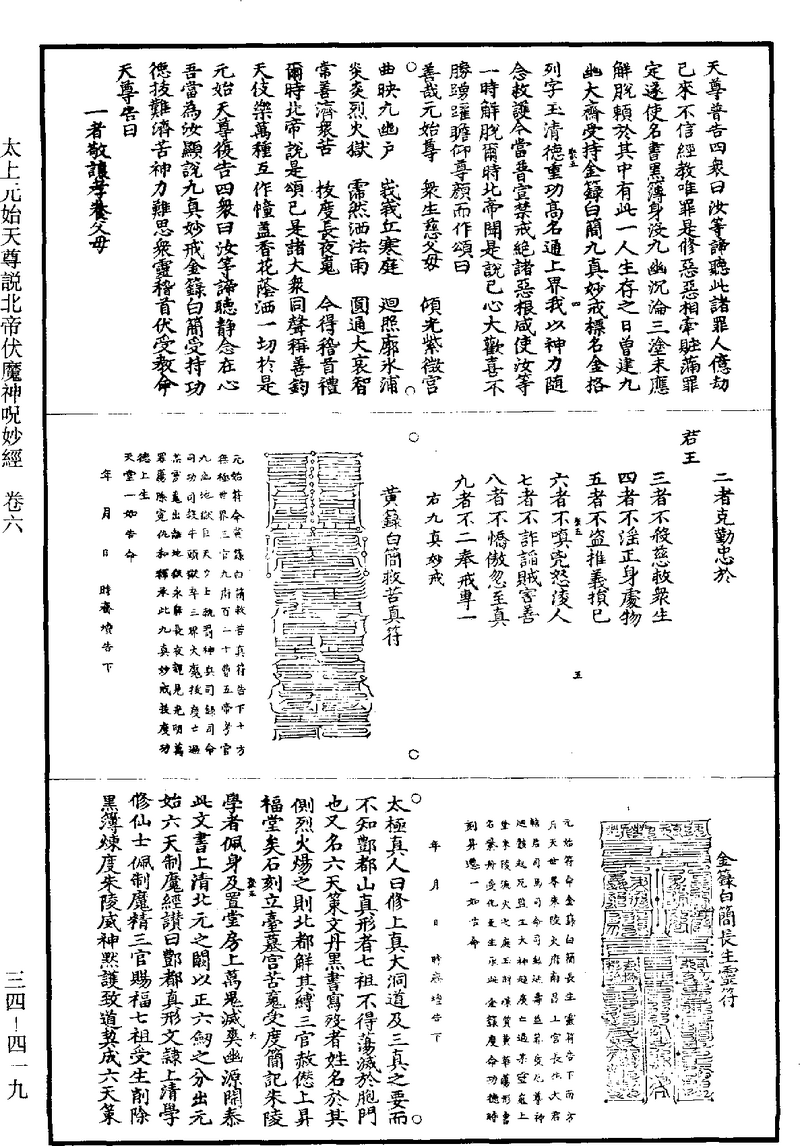 太上元始天尊説北帝伏魔神呪妙經 卷六
三四—四一九
天尊普告四衆曰汝等諦聽此諸罪人億劫
已來不信經教唯罪是修惡惡相牽賍滿罪
定遂使名書黑簿身没九幽沉淪三塗未應
解脱賴於其中有此一人生存之日曾建九
幽大齋受持金籙白簡九真妙戒標名金格
列字玉清德重功高名通上界我以神力隨
念救護今當普宣禁戒絶諸惡根咸使汝等
一時解脱爾時北帝聞是說已心大歡喜不
勝踴躍瞻仰尊顔而作頌曰
善哉元始尊 衆生慈父母 傾光紫微宫
曲映九幽户 峩峩丘寒庭 迴照廓氷浦
炎炎烈火獄 霈然洒法雨 圓通大哀智
常善濟衆苦 拔度長夜䰟 令得稽首禮
爾時北帝說是頌已是諸大衆同聲稱善鈞
天伎樂萬種互作幢盖香花蔭洒一切於是
元始天尊復告四衆曰汝等諦聽静念在心
吾當為汝顯說九真妙戒金籙白簡受持功
德拔難濟苦神力難思衆靈稽首伏受教命
天尊告曰
一者敬讓孝養父母
二者克勤忠於
君王
三者不殺慈救衆生
四者不淫正身處物
五者不盗推義損已
六者不嗔兇怒淩人
七者不詐謟賊害善
八者不憍傲忽至真
九者不二奉戒專一
右九真妙戒
黄籙白簡救苦真符
元始符命黄籙白簡救苦真符告下十方
無極世界三官九府百二十曹五帝考官
九幽地獄巨天力士執罰神兵司録司命
司功司殺牛頭獄卒三界大魔拔度亡過
魂出離地獄永辭長夜覩見光明萬
罪蕩除冤仇和釋承此九真妙戒拔度功
德上生
天堂一如告命
年 月 日 時齋壇告下
金籙白簡長生靈符
元始符命金籙白簡長生靈符告下南方
年 月 日 時齋壇告下
刻昇遷一如告命
太極真人曰修上真大洞道及三真之要而
不知酆都山真形者七祖不得蕩滅於胞門
也又名六天策文丹黑書寫殁者姓名於其
側烈火煬之則北都解其縛三官赦愆上昇
福堂矣石刻立臺墓宫苦䰟受度簡記朱陵
學者佩身及置堂房上萬鬼滅爽幽源開泰
此文書上清北元之闕以正六劒之分出元
始六天制魔經讃曰酆都真形文隷上清學
修仙士佩制魔精三官賜福七祖受生削除
黑簿煉度朱陵威神默護致道契成六天策